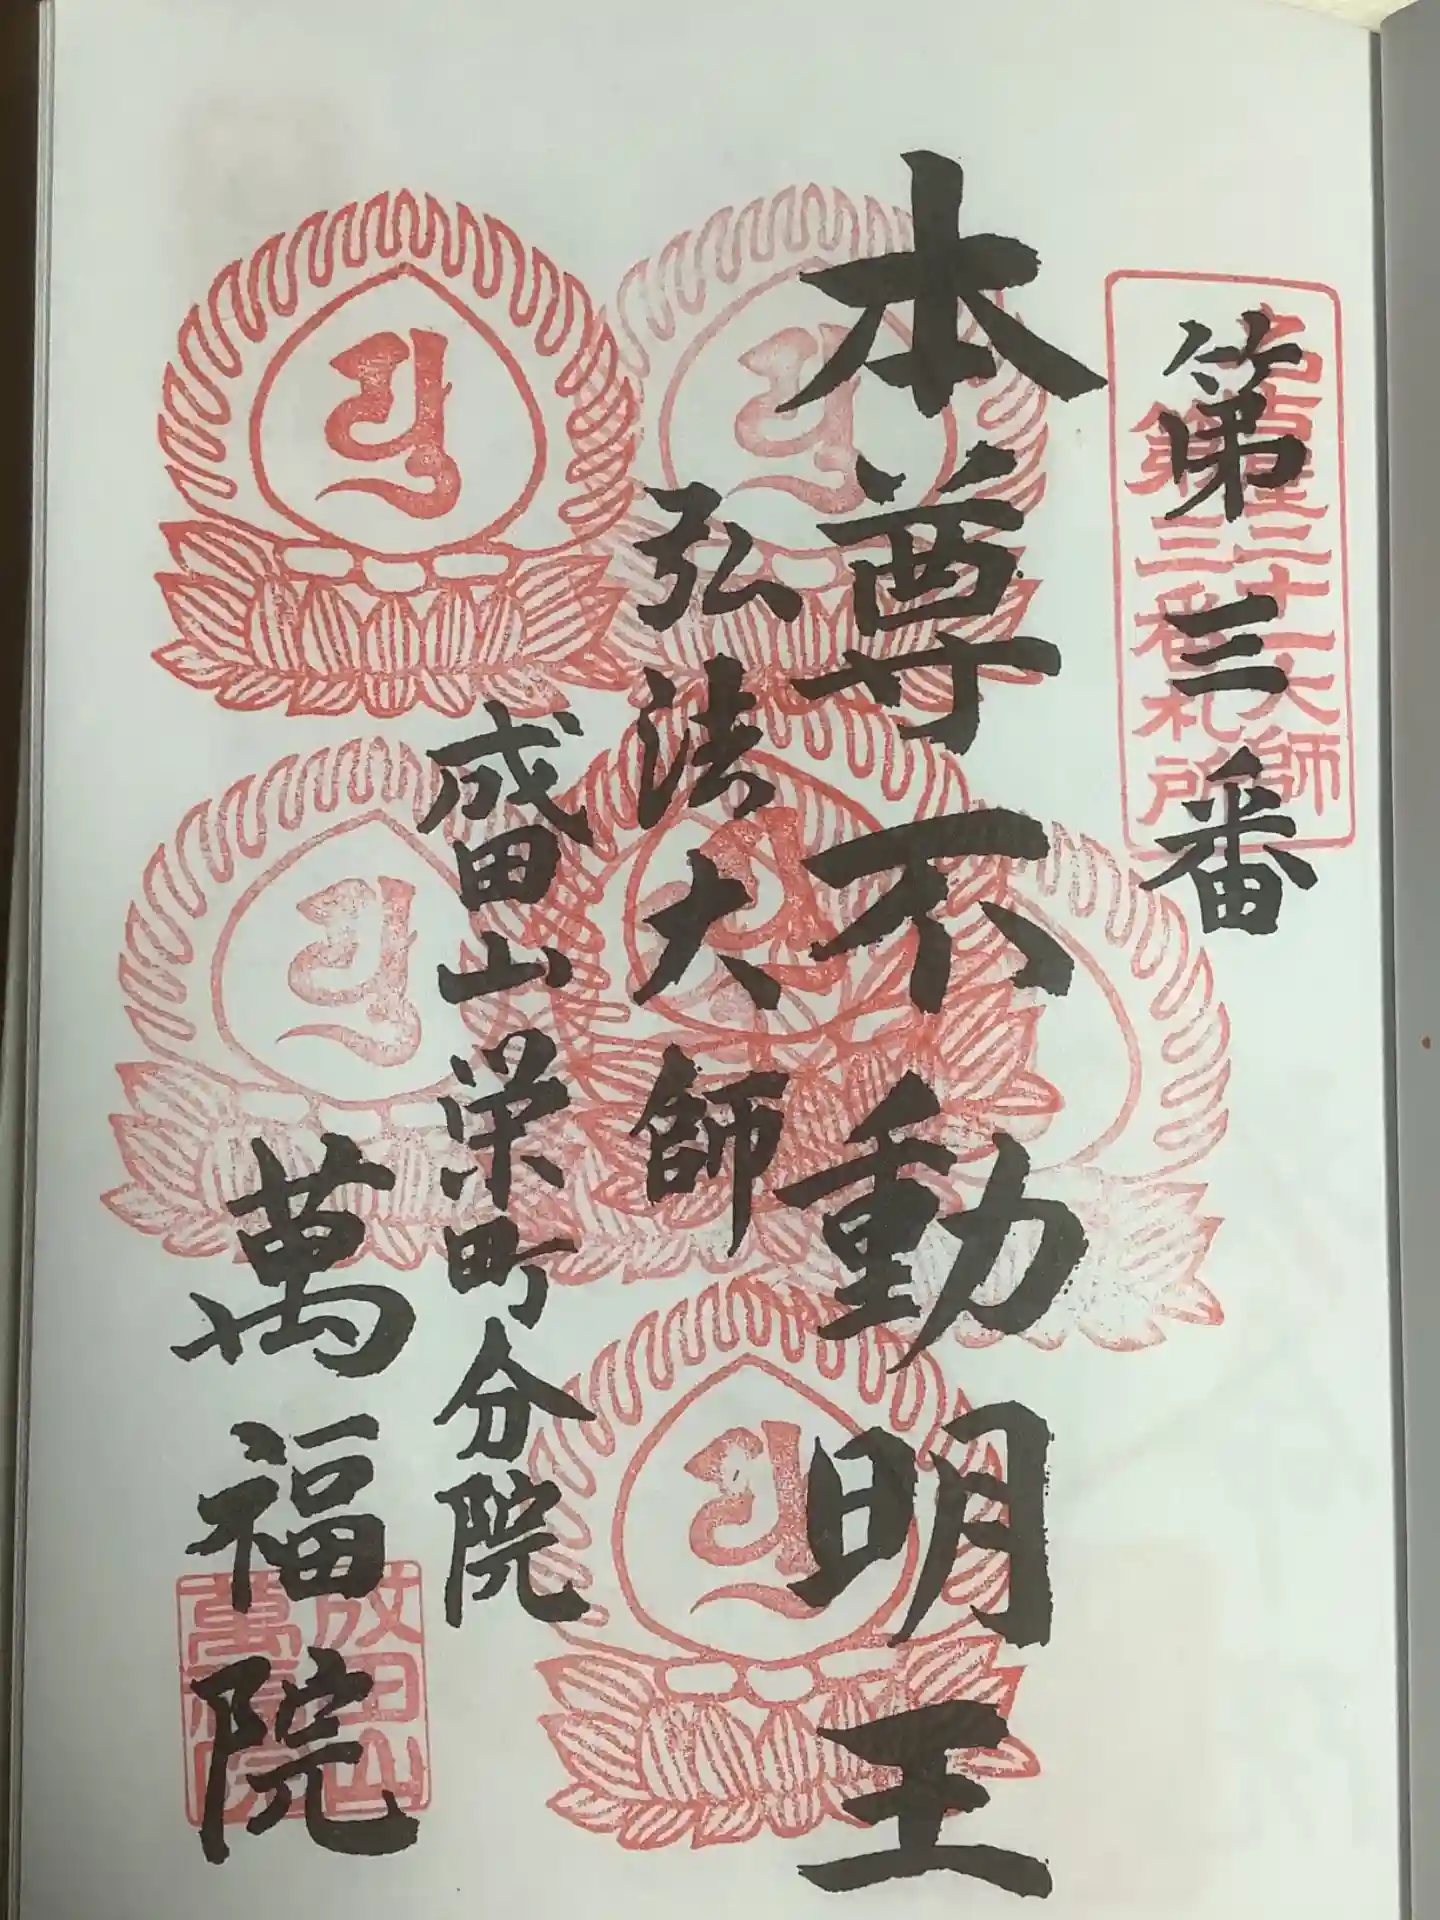 名古屋二十一大師
第三番札所
第三番
本尊不動明王
弘法大師
盛田山栄町分院
萬福院
成田山
萬福院